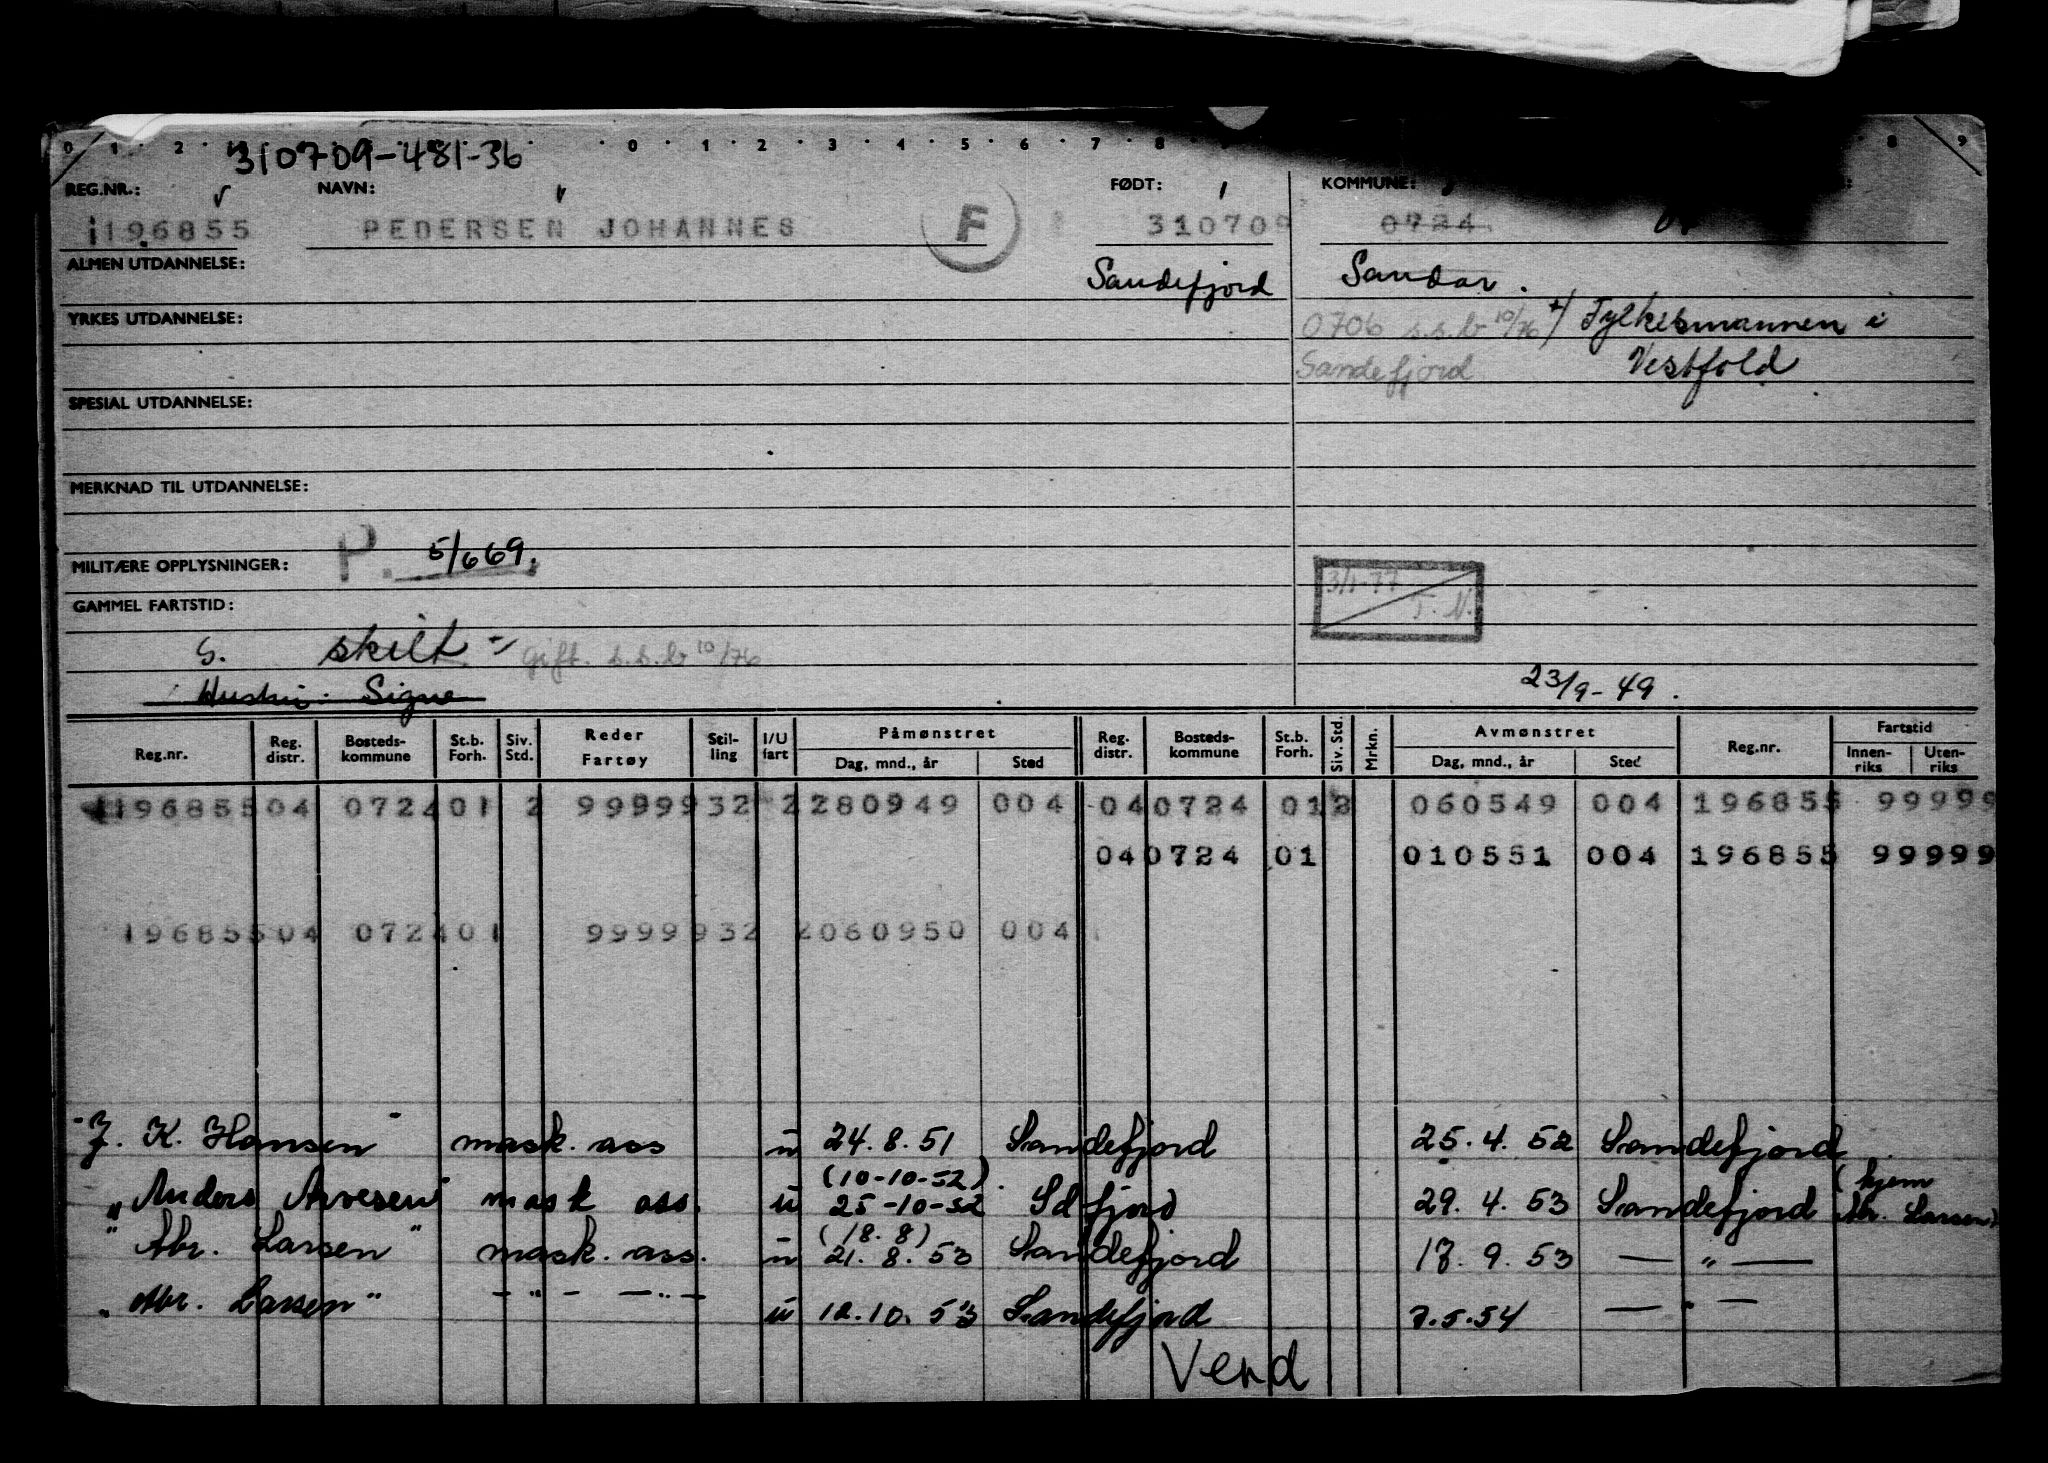 0 1 2 0 1 2 3 4 5 6 7 8 8 9
310709-481-36
REG.NR.: NAVN: FØDT: KOMMUNE:
196855 PEDERSEN JOHANNES F 310709 0724
ALMEN UTDANNELSE: Sandefjord Sandar.
YRKES UTDANNELSE: 0706 s.s.b 10/76 +) Fylkesmannen i
Sandefjord Vestfold
SPESIAL UTDANNELSE:
MERKNAD TIL UTDANNELSE:
MILITÆRE OPPLYSNINGER: P. 5/6 69.
3/1-77 T. N.
GAMMEL FARTSTID:
S. skilt = gift. s.s.b 10/76
Hustru: Signe 23/9-49.
Reg.nr. Reg. distr. Bosteds-kommune St.b. Forh. Siv. Std. Reder Fartøy Stil-ling I/U fart Påmønstret Dag, mnd., år Sted Reg. distr. Bosteds-kommune St.b. Forh. Siv. Std. Mrkn. Avmønstret Dag, mnd., år Sted Reg.nr. Fartstid Innen-riks Uten-riks
196855 04 0724 01 2 9999 932 2 280949 004 04 0724 01 2 060549 004 196855 99999
04 0724 01 010551 004 196855 99999
196855 04 0724 01 9999 932 2 060950 004
"J. K. Hansen" mask. ass u 24.8.51 Sandefjord 25.4.52 Sandefjord
(10-10-52). (hjem
"Anders Arvesen" mask ass. u 25-10-52 Sdfjord 29.4.53 Sandefjord Abr. Larsen)
(18.8)
"Abr. Larsen" mask. ass. u 21.8.53 Sandefjord 17.9.53 — " —
"Abr. Larsen" - " - — " — u 12.10.53 Sandefjord 7.5.54 — " —
Vend